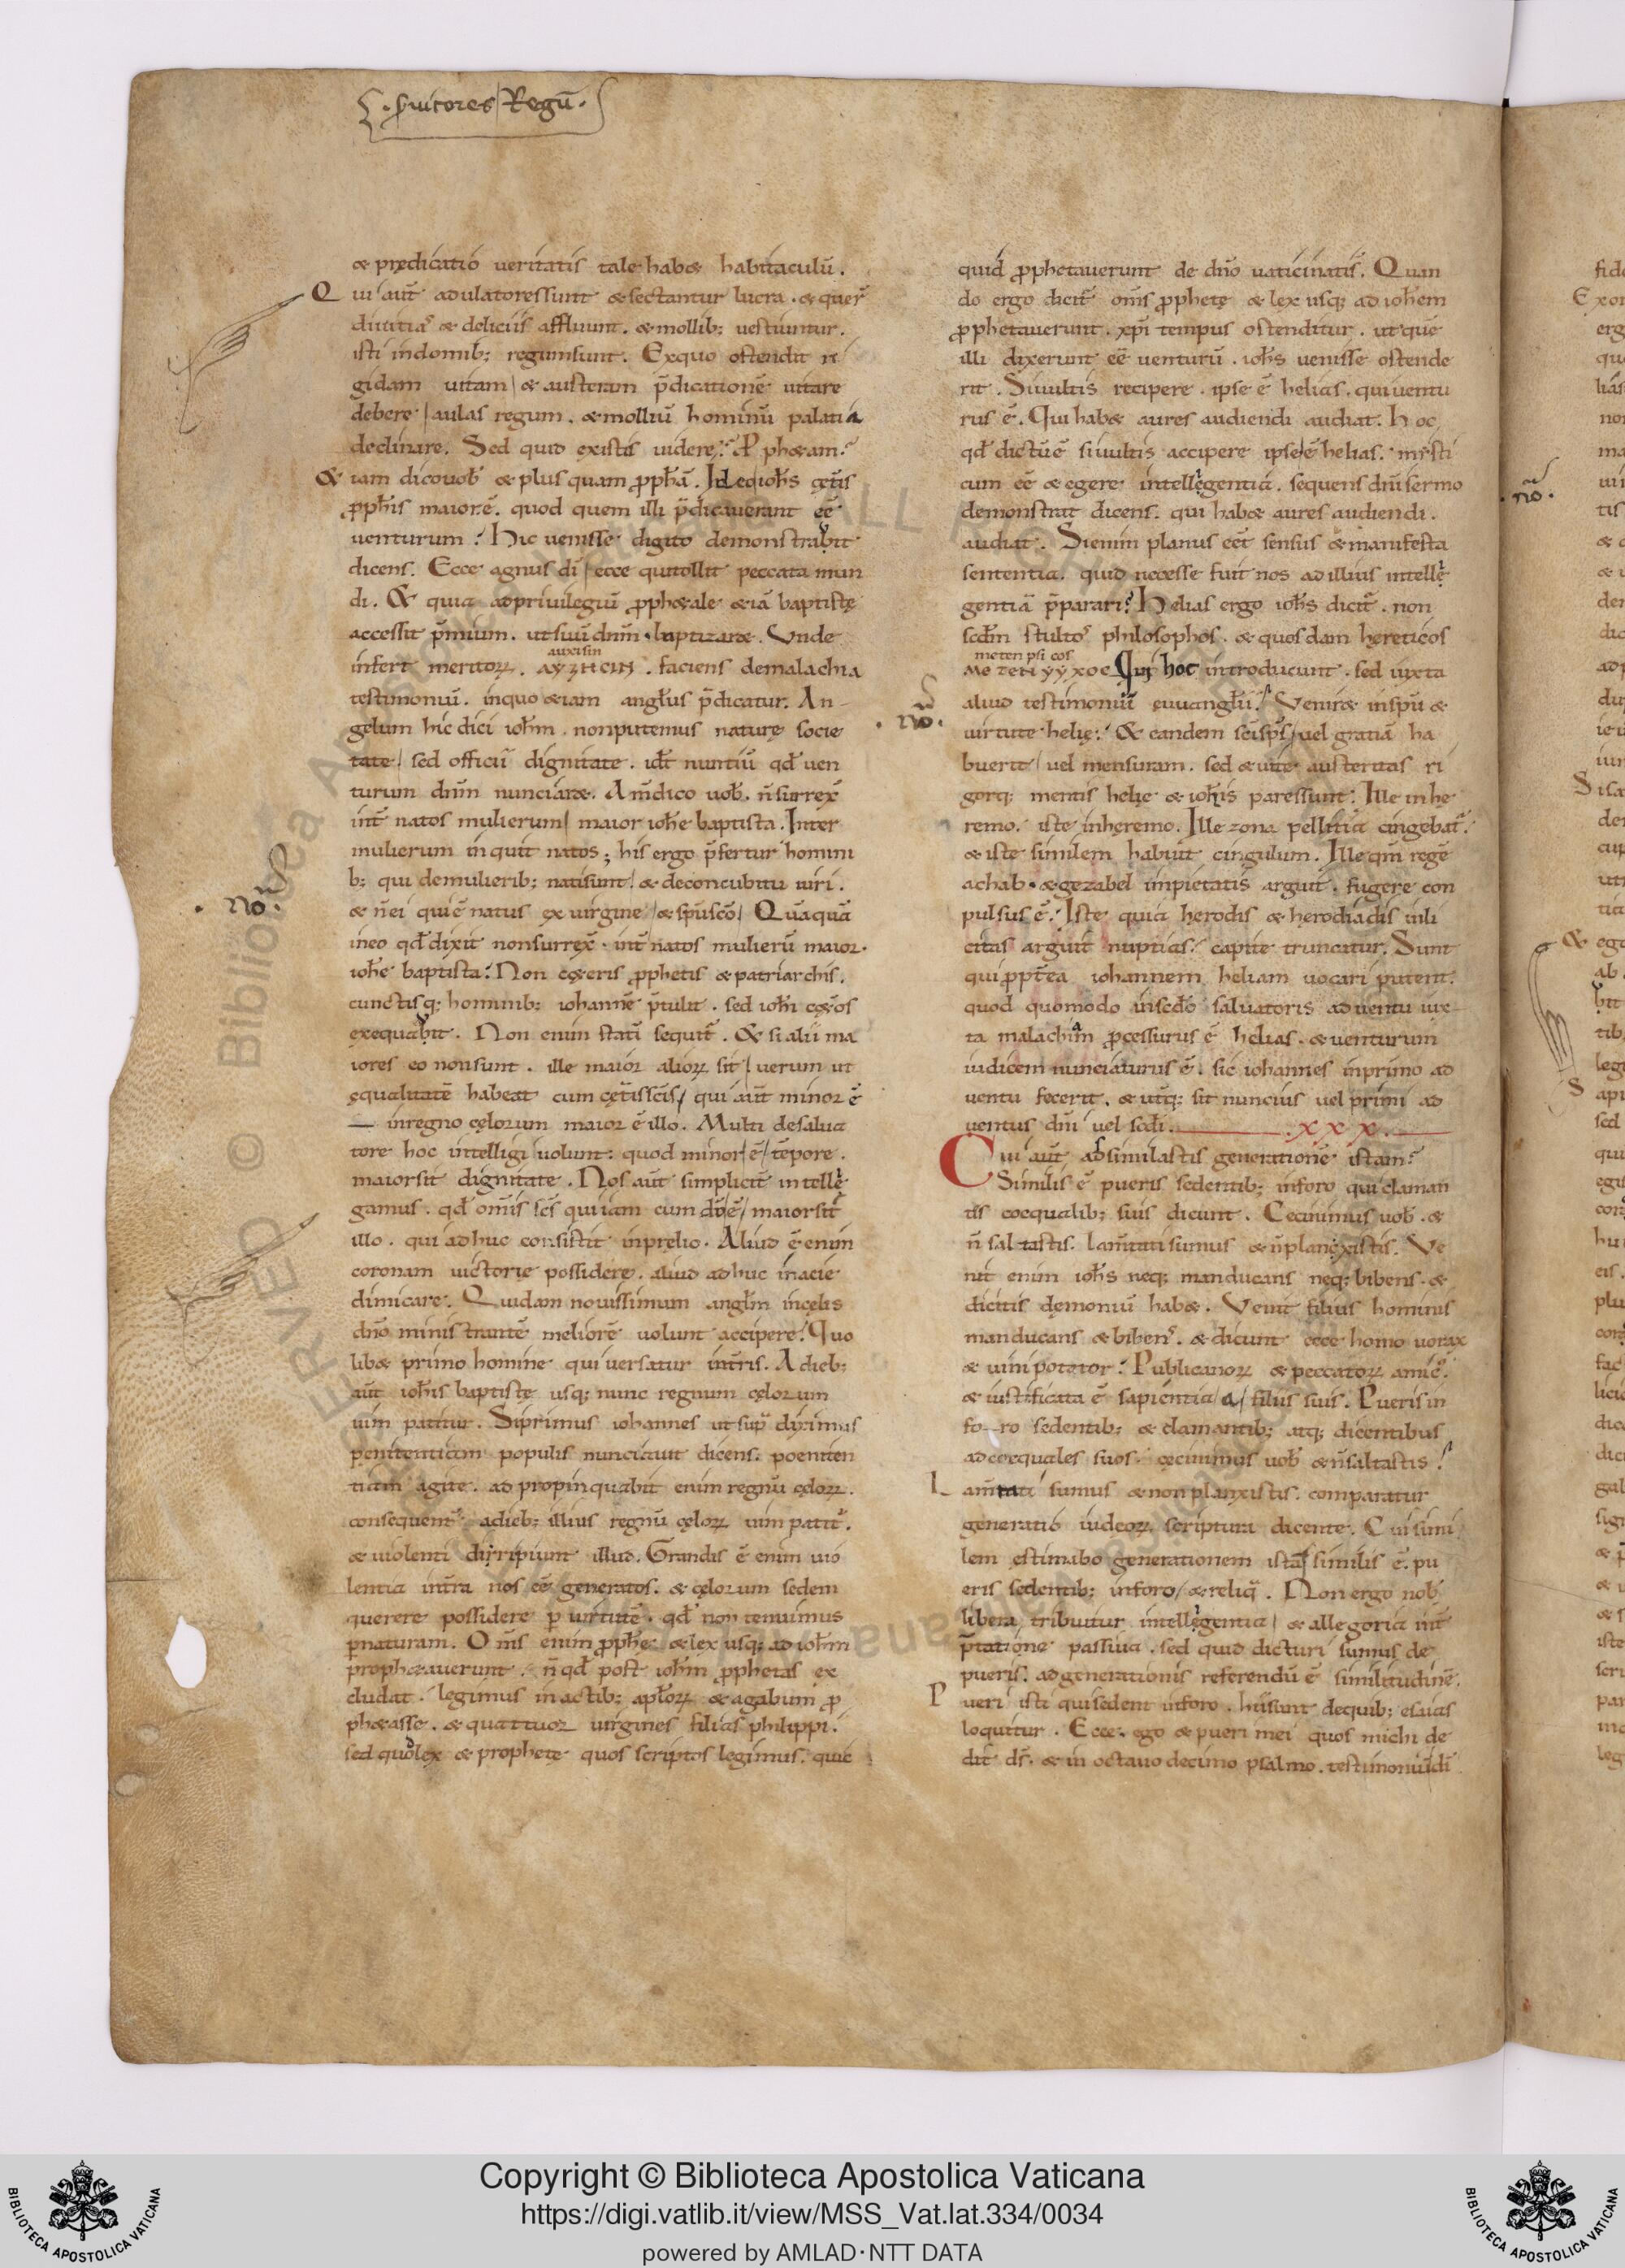 .s̄uitores Regū.
& prędicatio ueritatis tale hab& habitaculū.
Qui aut̄ adulatores sunt & sectantur lucra. & quer̄
diuitias & deliciis affluunt. & mollib; uestiuntur.
isti in domib; regum sunt. Ex quo ostendit ri
gidam uitam & austeram p̄dicationē uitare
debere aulas regum. & molliū hominū palatia
declinare. Sed quid existis uidere? P ph&am?
&iam dico uob̄ & plus quam ꝓph̄ā. Ideo ioh̄s cęt̄is
ꝓph̄is maior ē. quod quem illi p̄dicauerant eē
uenturum? Hic uenisse digito demonstrabit
dicens. Ecce agnus dī ecce qui tollit peccata mun
di. & quia ad priuilegiū ꝓph&ale &iā baptistę
accessit p̄mium. ut suū dn̄m baptizar&. Vnde
auxisin
infert meritoꝝ. ΑΥΖΗCΙΝ. faciens de malachia
testimoniū. in quo &iam angl̄us p̄dicatur. An
gelum hic dici ioh̄m. non putemus naturę socie
tate sed officii dignitate. id̄ nuntiū qd̄ uen
turum dn̄m nunciar&. Am̄ dico uob̄. n̄ surrex̄
int̄ natos mulierum maior ioh̄e baptista. Inter
mulierum inquit natos; his ergo p̄fertur homini
b; qui de mulierib; nati sunt & de concubitu uiri.
& n̄ ei qui ē natus ex uirgine & sp̄u sc̄o Quāquā
in eo qd̄ dixit non surrex̄. int̄ natos mulierū maior.
ioh̄e baptista? Non c&eris ꝓphetis & patriarchis.
cunctisq; hominib; iohannē p̄tulit. sed ioh̄i c&os
exequabit. Non enim statī sequit̄. & si alii ma
iores eo non sunt. ille maior alioꝝ sit uerum ut
ęqualitatē habeat cum cęt̄is sc̄is qui aut̄ minor ē
in regno cęlorum maior ē illo. Multi de salua
tore hoc intelligi uolunt: quod minor ē tēpore.
maior sit dignitate. Nos aut̄ simplicit̄ intellę
gamus. qd̄ om̄is sc̄s qui iam cum dō ē maior sit
illo. qui adhuc consistit in prelio. Aliud ē enim
coronam uictorie possidere. aliud adhuc in acie
dimicare. Quidam nouissimum angl̄m in cęlis
dn̄o ministrantē meliorē uolunt accipere? Quo
lib& primo homine qui uersatur in tr̄is. A dieb;
aut̄ ioh̄is baptistę usq; nunc regnum cęlorum
uim patitur. Si primus iohannes ut sup̄ diximus
penitentiam populis nunciauit dicens. poeniten
tiam agite. ad propinquabit enim regnū cęloꝝ.
consequent̄ a dieb; illius regnū cęloꝝ uim patit̄.
& uiolenti diripiunt illud. Grandis ē enim uio
lentia in t̄ra nos eē generatos. & cęlorum sedem
querere possidere p uirtutē. qd̄ non tenuimus
p naturam. Om̄s enim ꝓph̄e & lex usq; ad ioh̄m
proph&auerunt. n̄ qd̄ post ioh̄m ꝓphetas ex
cludat. legimus in actib; apl̄oꝝ & agabum ꝓ
ph&asse. & quattuor uirgines filias philippi.
sed quod lex & prophete quos scriptos legimus. quic
quid ꝓphetauerunt de dn̄o uaticinati s̄. Quan
do ergo dicit̄ om̄s ꝓphetę & lex usq; ad ioh̄em
ꝓphetauerunt. xp̄i tempus ostenditur. ut que
illi dixerunt eē uenturū. ioh̄s uenisse ostende
rit. Si uultis recipere. ipse ē helias. qui uentu
rus ē. Qui hab& aures audiendi audiat. Hoc
qd̄ dictū ē si uultis accipere ipse ē helias. misti
cum eē & egere intellęgentia. sequens dn̄i sermo
demonstrat dicens. qui hab& aures audiendi.
audiat. Si enim planus eēt sensus & manifesta
sententia. quid necesse fuit nos ad illius intellę
gentiā p̄parari? Helias ergo ioh̄s dicit̄. non
scd̄m stultos philosophos. & quosdam hęreticos
meten psi cos
ΜΕΤΕΝΥΥΧΟC Qui hoc introducunt. sed iuxta
aliud testimoniū euuangl̄ii. Venir& in sp̄u &
uirtute helię. & eandem sc̄i sp̄s uel gratiā ha
buerit uel mensuram. sed & uitę austeritas ri
gorq; mentis helie & ioh̄is pares sunt. Ille in he
remo. iste in hęremo. Ille zona pellitia cingebat̄.
& iste similem habuit cingulum. Ille qm̄ regē
achab. & gezabel impietatis arguit. fugere con
pulsus ē. Iste quia herodis & herodiadis inli
citas arguit nuptias. capite truncatur. Sunt
qui ꝓpt̄ea iohannem heliam uocari putent.
quod quomodo in scd̄o saluatoris aduentu iux
ta malachiam ꝓcessurus ē helias. & uenturum
iudicem nunciaturus ē. sic iohannes in primo ad
uentu fecerit. & ut̄q; sit nuncius uel primi ad
uentus dn̄i uel scd̄i. .xxx.
Cui aut̄ absimilastis generationē istam?
Similis ē pueris sedentib; in foro qui claman
tis coequalib; suis dicunt. Cecinimus uob̄. &
n̄ saltastis. lam̄tati sumus & n̄ planxistis. Ve
nit enim ioh̄s neq; manducans neq; bibens. &
dicitis demoniū hab&. Venit filius hominis
manducans & bibens. & dicunt ecce homo uorax
& uini potator? Publicanoꝝ & peccatoꝝ amic̄.
& iustificata ē sapientia a filiis suis. Pueris in
fo-ro sedentib; & clamantib; atq; dicentibus
ad coequales suos. cecinimus uob̄ & n̄ saltastis?
Lam̄tati sumus & non planxistis. comparatur
generatio iudeoꝝ scriptura dicente. Cui simi
lem estimabo generationem istā similis ē. pu
eris sedentib; in foro & reliq̄. Non ergo nob̄
libera tribuitur intellęgentia & allegoria int̄
p̄tatione passiua. sed quid dicturi sumus de
pueris. ad generationis referendū ē similitudinē.
Pueri isti qui sedent in foro. hii sunt de quib; esaias
loquitur. Ecce. ego & pueri mei quos michi de
dit dś. & in octauo decimo psalmo. testimoniū dī
.no.
.no.
.no.
Copyright © Biblioteca Apostolica Vaticana
https://digi.vatlib.it/view/MSS_Vat.lat.334/0034
powered by AMLAD·NTT DATA
BIBLIOTECA APOSTOLICA VATICANA
BIBLIOTECA APOSTOLICA VATICANA